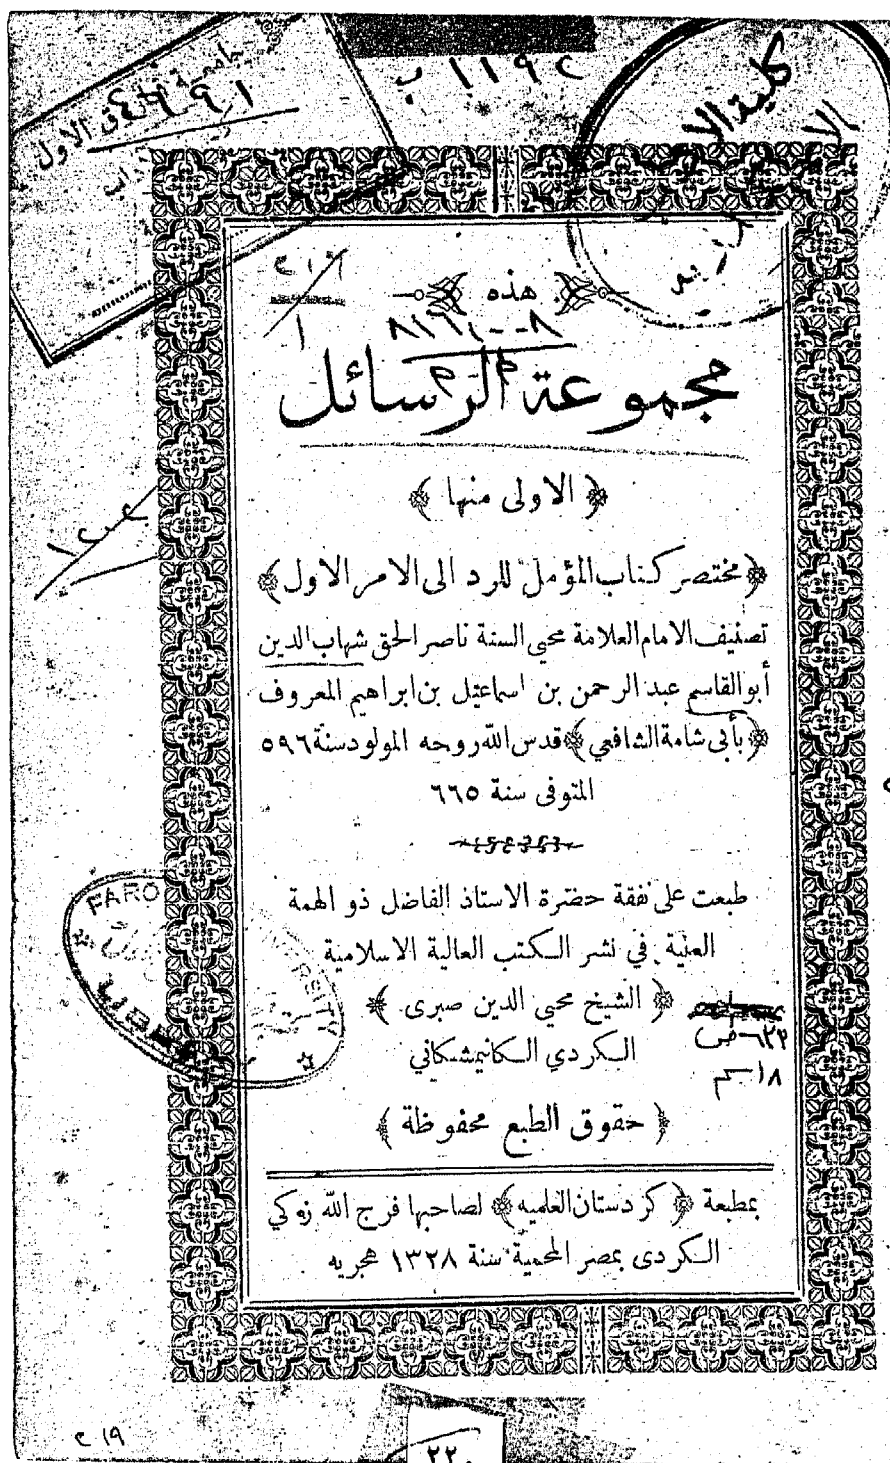 ١١٩٢ ب
٤٦٩١
كلية الا
هذه
مجموعة الرسائل
﴿ الاولى منها ﴾
﴿ مختصر كتاب المؤمل للرد الى الامر الاول ﴾
تصنيف الامام العلامة محيى السنة ناصر الحق شهاب الدين
أبو القاسم عبد الرحمن بن اسماعيل بن ابراهيم المعروف
﴿ بأبى شامة الشافعي ﴾ قدس الله روحه المولود سنة ٥٩٦
المتوفى سنة ٦٦٥
طبعت على نفقة حضرة الاستاذ الفاضل ذو الهمة
العلية في نشر الكتب العالية الاسلامية
﴿ الشيخ محيى الدين صبرى ﴾
الكردي الكانيمشكاني
٦٢٣ ص
١٨ سم
﴿ حقوق الطبع محفوظة ﴾
بمطبعة ﴿ كردستان العلميه ﴾ لصاحبها فرج الله زكي
الكردى بمصر المحمية سنة ١٣٢٨ هجريه
FARO
٢٢٠